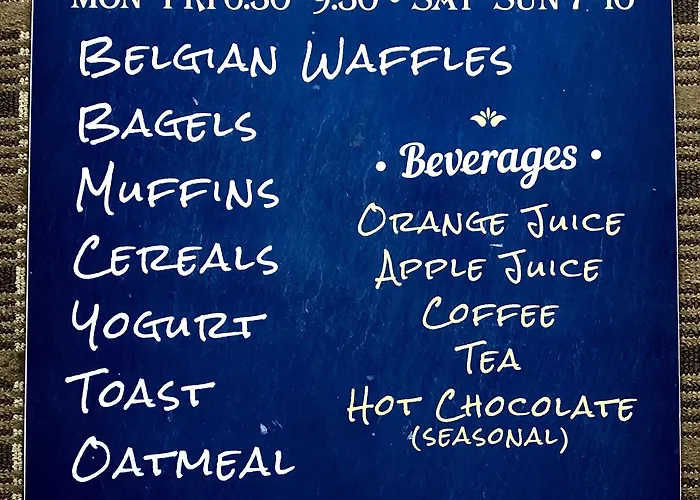 MON FRI 6:30 9:30 • SAT SUN 7 10
BELGIAN WAFFLES
BAGELS
MUFFINS
CEREALS
YOGURT
TOAST
OATMEAL
• Beverages •
ORANGE JUICE
APPLE JUICE
COFFEE
TEA
HOT CHOCOLATE
(SEASONAL)